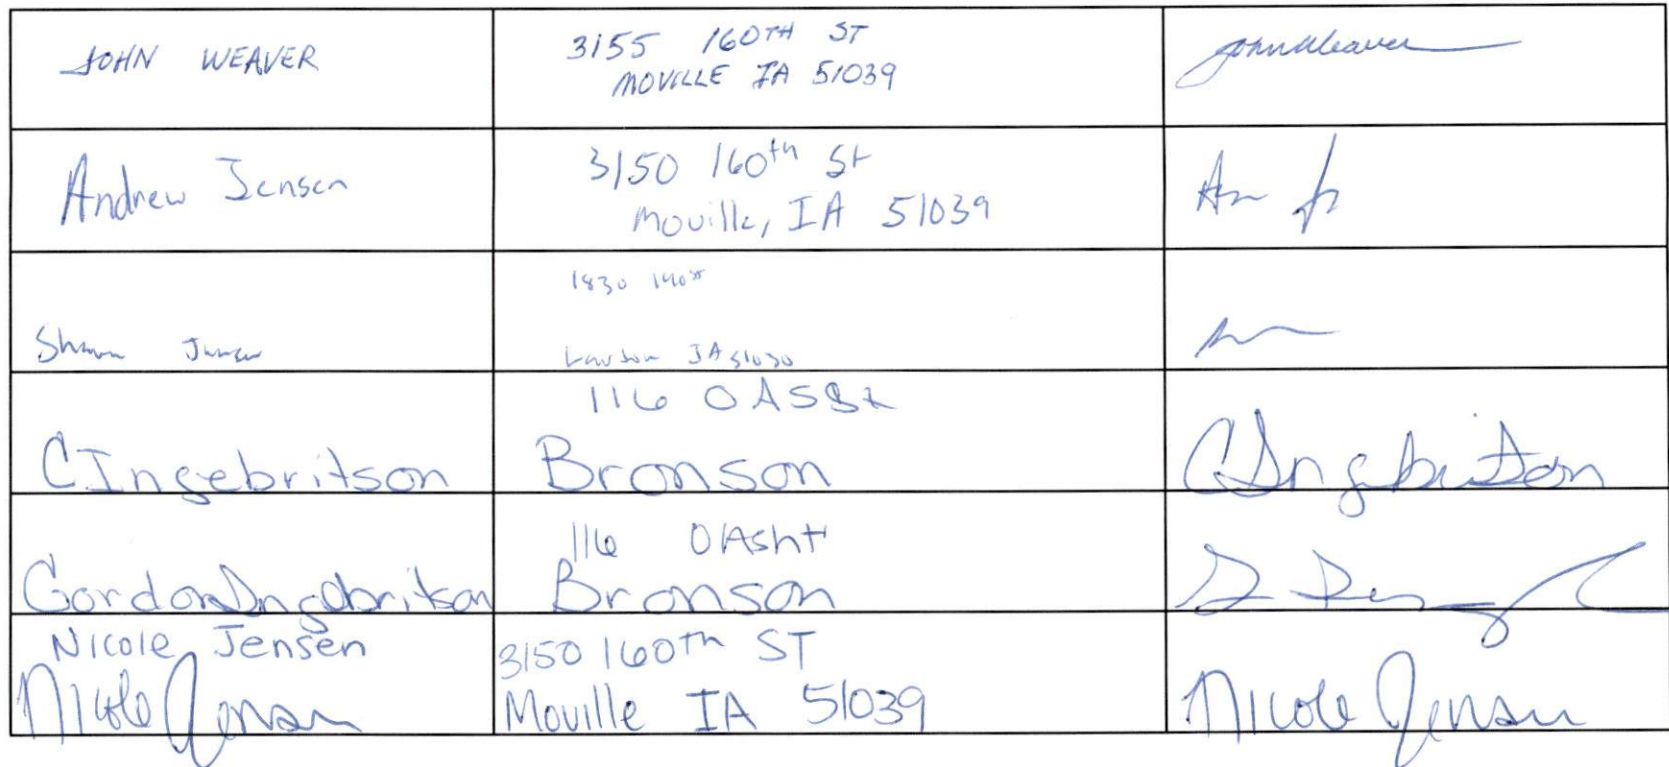 JOHN WEAVER
3155 160TH ST
MOVILLE IA 51039
John Weaver
Andrew Jensen
3150 160th St
Moville, IA 51039
1830 140
Shawn
Lawton IA 51030
116 O
CIngebritson
Bronson
CIngebritson
116
Gordon Ingebritson
Bronson
Nicole Jensen
Nicole Jensen
3150 160th ST
Moville IA 51039
Nicole Jensen